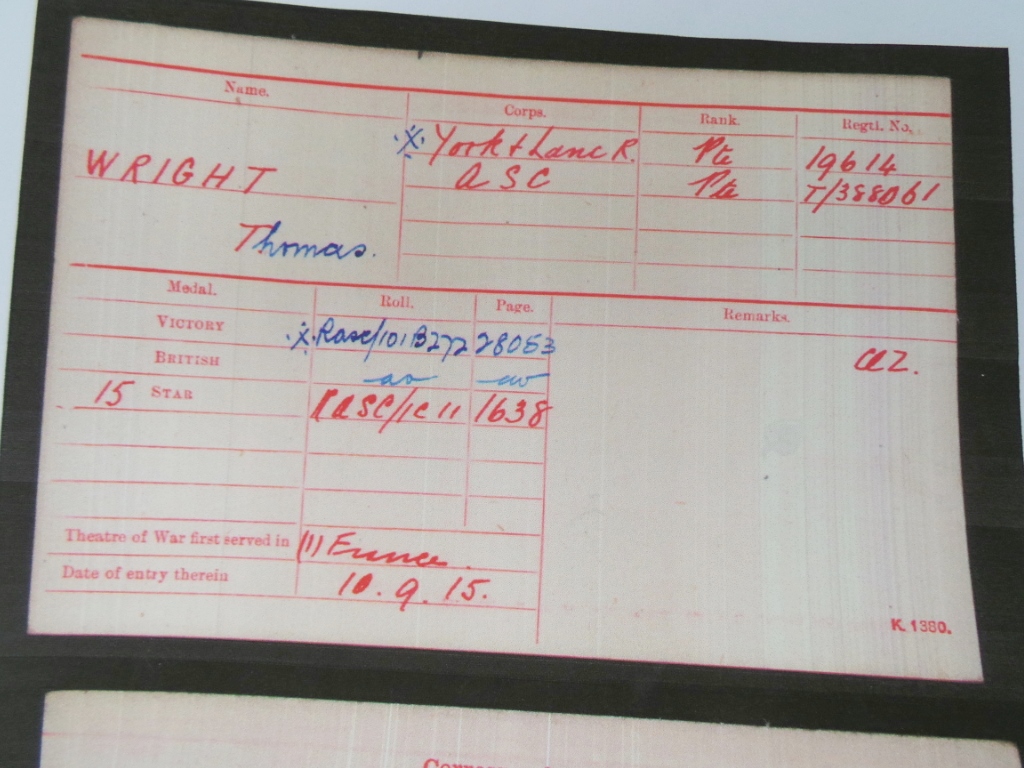 Name. Corps. Rank. Regtl. No.
WRIGHT ※ York + Lanc R. Pte 19614
ASC Pte T/388061
Thomas.
Medal. Roll. Page. Remarks.
VICTORY ※ RASC/101B272 28053
BRITISH do do CZ.
15 STAR RASC/1C11 1638
Theatre of War first served in (1) France.
Date of entry therein 10.9.15.
K. 1380.